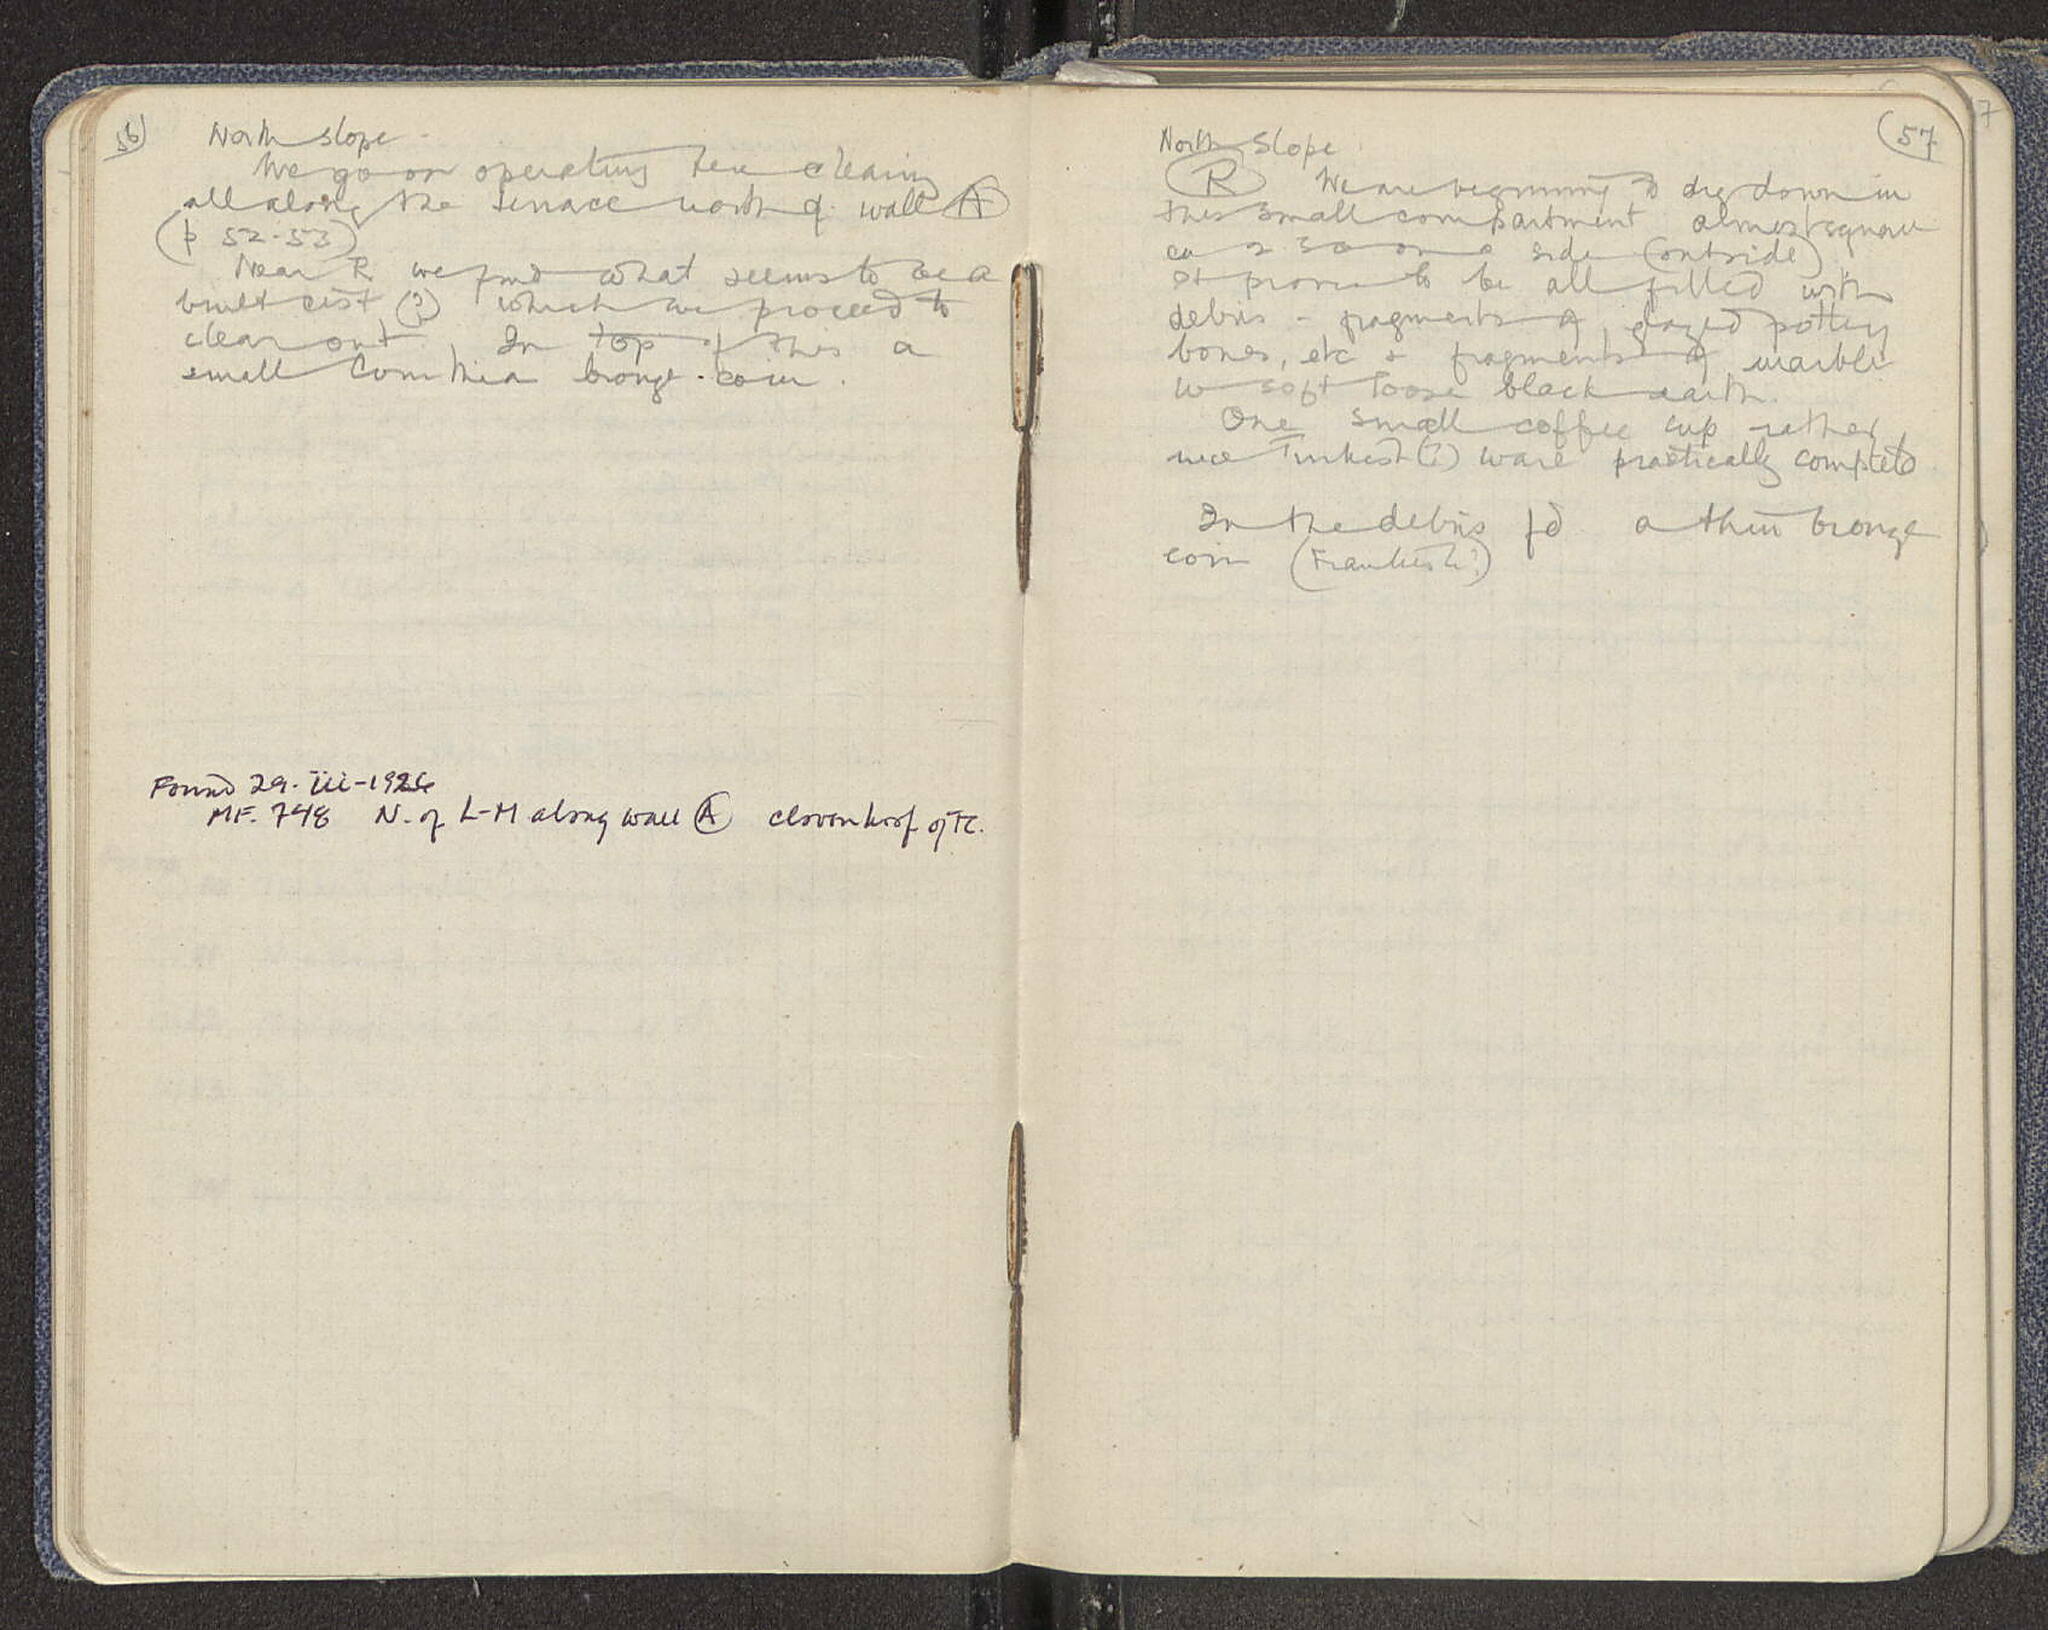 56
North slope.
We go on operating here clearing
all along the terrace north of wall A
(p 52-53)
Near R we find what seems to be a
built cist (?) which we proceed to
clear out. In top of this a
small Corinthian bronze coin.
Found 29-III-1926
MF. 748 N. of L-M along wall A cloven hoof of TC.
57
North Slope
R We are beginning to dig down in
this small compartment almost square
ca 2 50 on a side (outside)
It proves to be all filled with
debris - fragments of glazed pottery
bones, etc & fragments of marble
in soft loose black earth.
One small coffee cup rather
nice Turkish (?) ware practically complete
In the debris fd a thin bronze
coin (Frankish?)
7